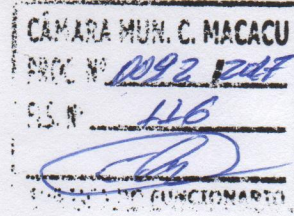 CÂMARA MUN. C. MACACU
PROC. Nº 0092 / 2017
FLS. Nº 116
FUNCIONARIO